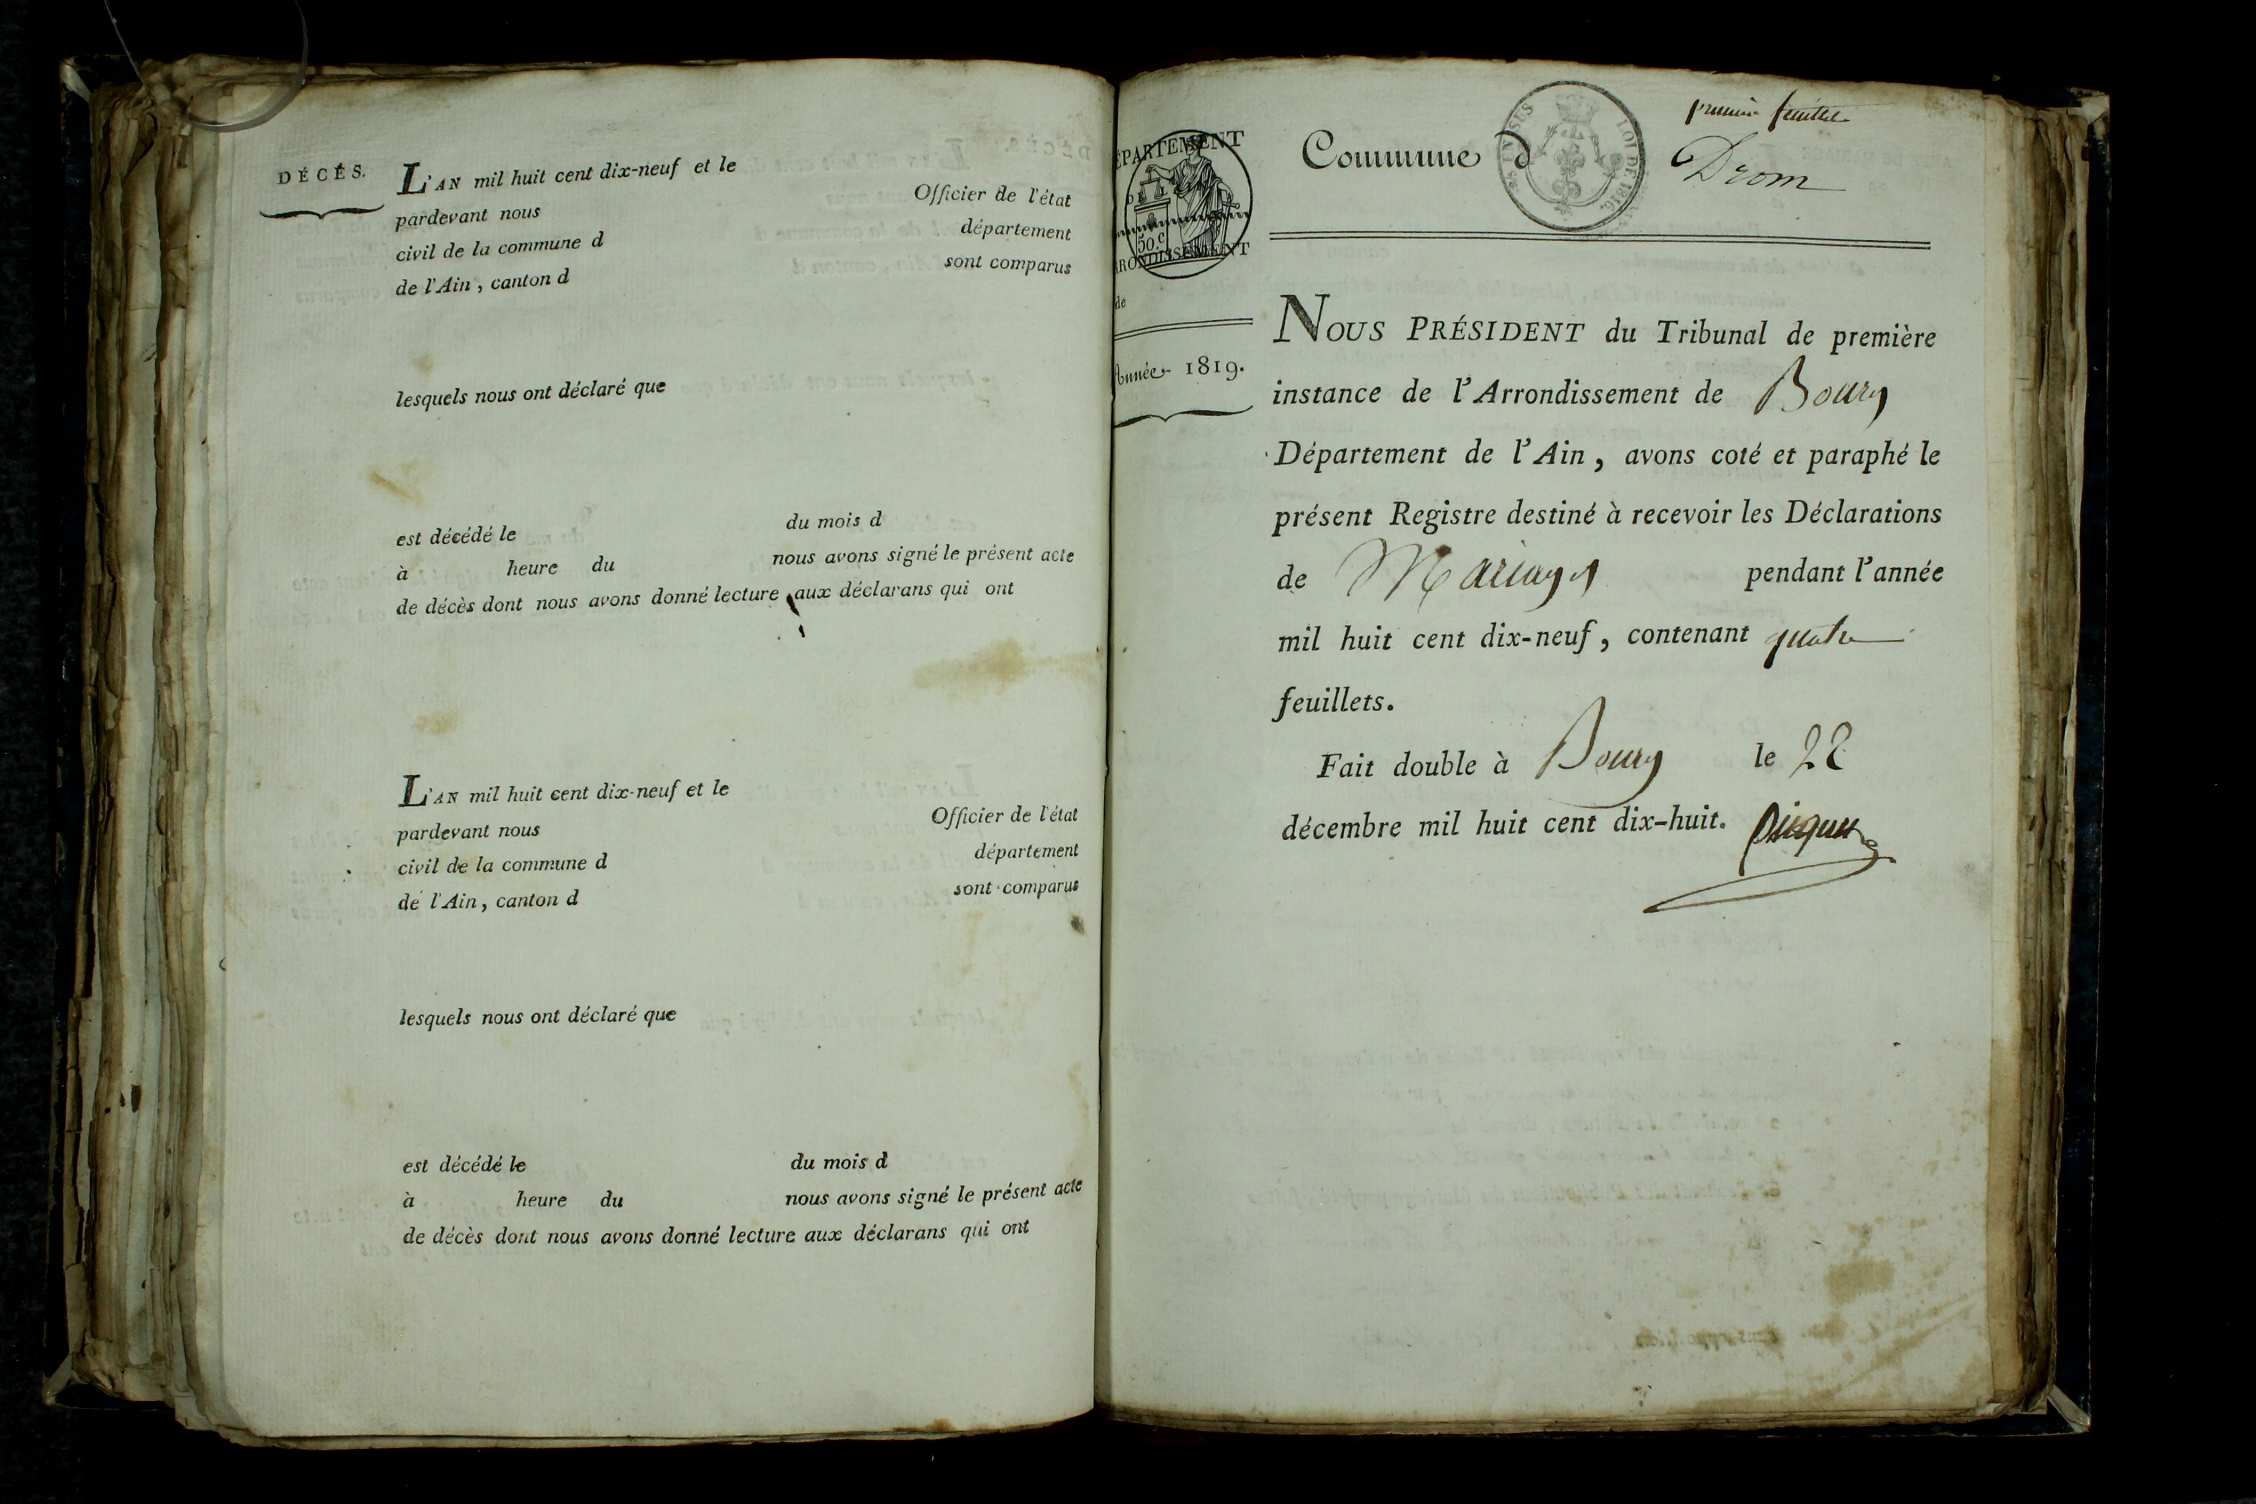 DÉCÉS.
L'AN mil huit cent dix-neuf et le
pardevant nous Officier de l'état
civil de la commune d département
de l'Ain, canton d sont comparus
lesquels nous ont déclaré que
est décédé le du mois d
à heure du nous avons signé le présent acte
de décès dont nous avons donné lecture aux déclarans qui ont
L'AN mil huit cent dix-neuf et le
pardevant nous Officier de l'état
civil de la commune d département
de l'Ain, canton d sont comparus
lesquels nous ont déclaré que
est décédé le du mois d
à heure du nous avons signé le présent acte
de décès dont nous avons donné lecture aux déclarans qui ont
premier feuillet
ÉPARTEMENT
50.c
RRONDISSEMENT
de
Année 1819.
Commune d Drom
LOI DE 1816.
NOUS PRÉSIDENT du Tribunal de première
instance de l'Arrondissement de Bourg
Département de l'Ain, avons coté et paraphé le
présent Registre destiné à recevoir les Déclarations
de Mariages pendant l'année
mil huit cent dix-neuf, contenant quatre
feuillets.
Fait double à Bourg le 22
décembre mil huit cent dix-huit.